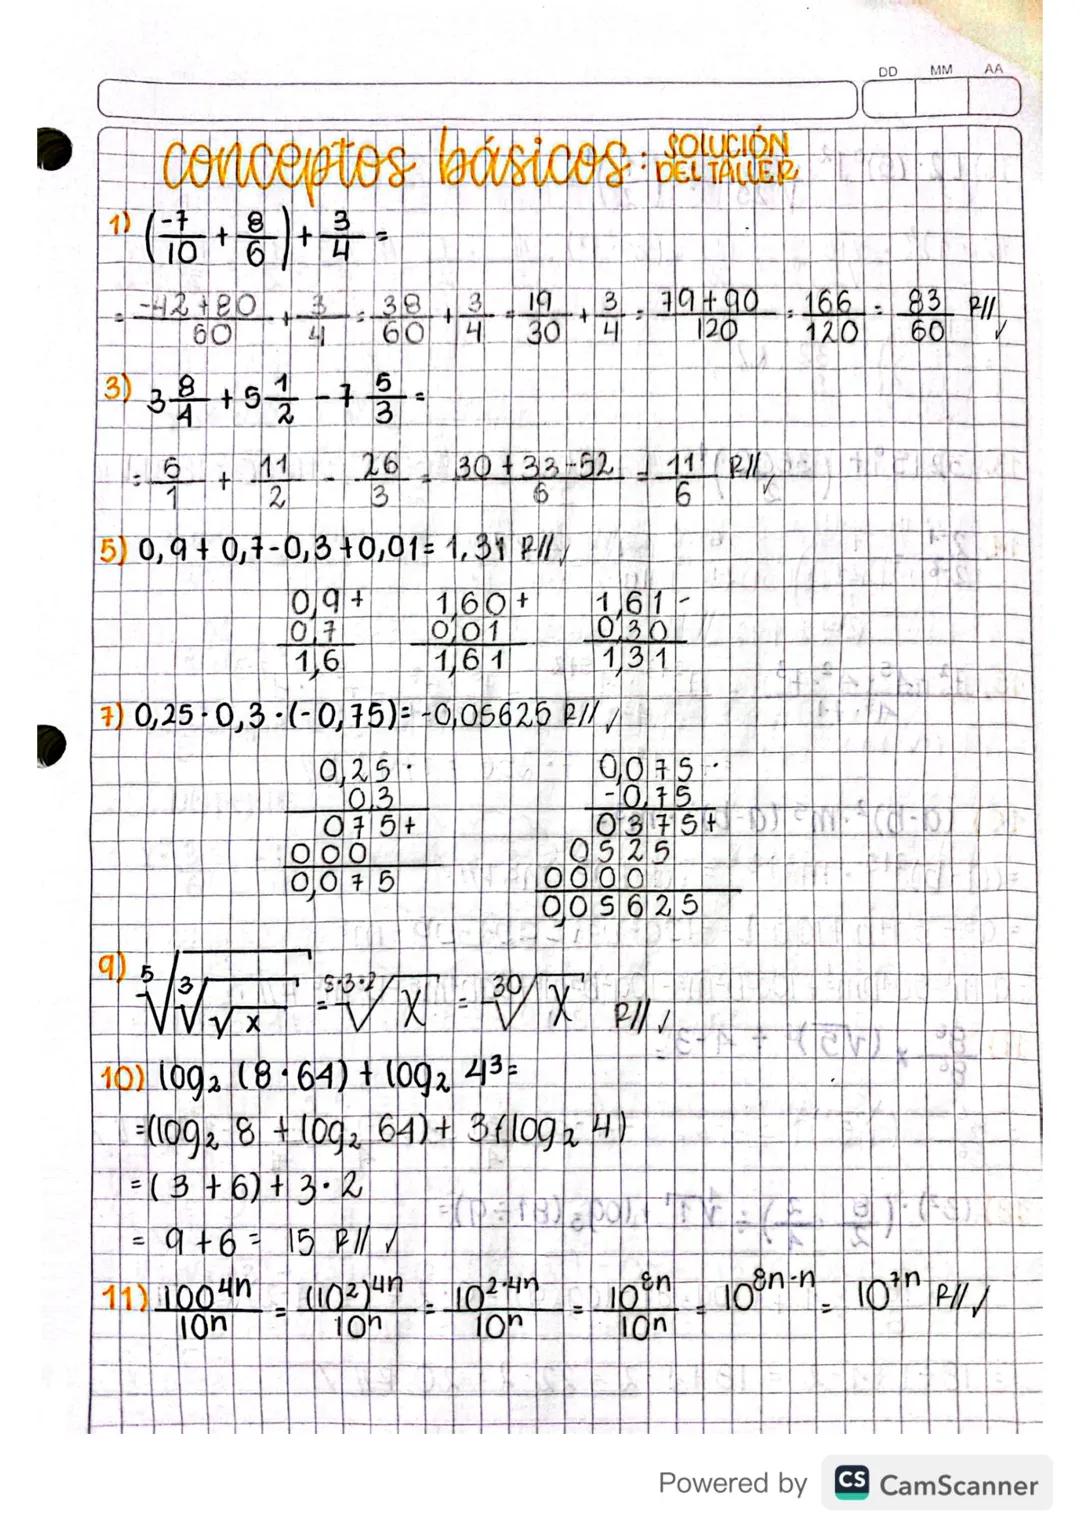 DD MM AA
conceptos básicos: SOLUCIÓN DEL TALLER
1) (-7/10 + 8/6) + 3/4 =
= -42+80/60 + 3/4 = 38/60 + 3/4 = 19/30 + 3/4 = 79+90/120 = 166/120 = 83/60 R// ✓
3) 3 8/4 + 5 1/2 - 7 5/3 =
= 5/1 + 11/2 - 26/3 = 30+33-52/6 = 11/6 R// ✓
5) 0,9 + 0,7 - 0,3 + 0,01 = 1,31 R// ✓
0,9 + 1,60 + 1,61 -
0,7 0,01 0,30
1,6 1,61 1,31
7) 0,25 · 0,3 · (-0,75) = -0,05625 R// ✓
0,25 · 0,075 ·
0,3 -0,75
075+ 0375+
000 0525
0,075 0000
0,05625
9) ⁵√³√√x = ⁵·³·²√x = ³⁰√x R// ✓
10) log₂ (8·64) + log₂ 4³=
=(log₂ 8 + log₂ 64) + 3(log₂ 4)
= (3+6) + 3·2
= 9+6 = 15 R// ✓
11) 100⁴ⁿ/10ⁿ = (10²)⁴ⁿ/10ⁿ = 10²·⁴ⁿ/10ⁿ = 10⁸ⁿ/10ⁿ = 10⁸ⁿ⁻ⁿ = 10⁷ⁿ R// ✓
Powered by CS CamScanner